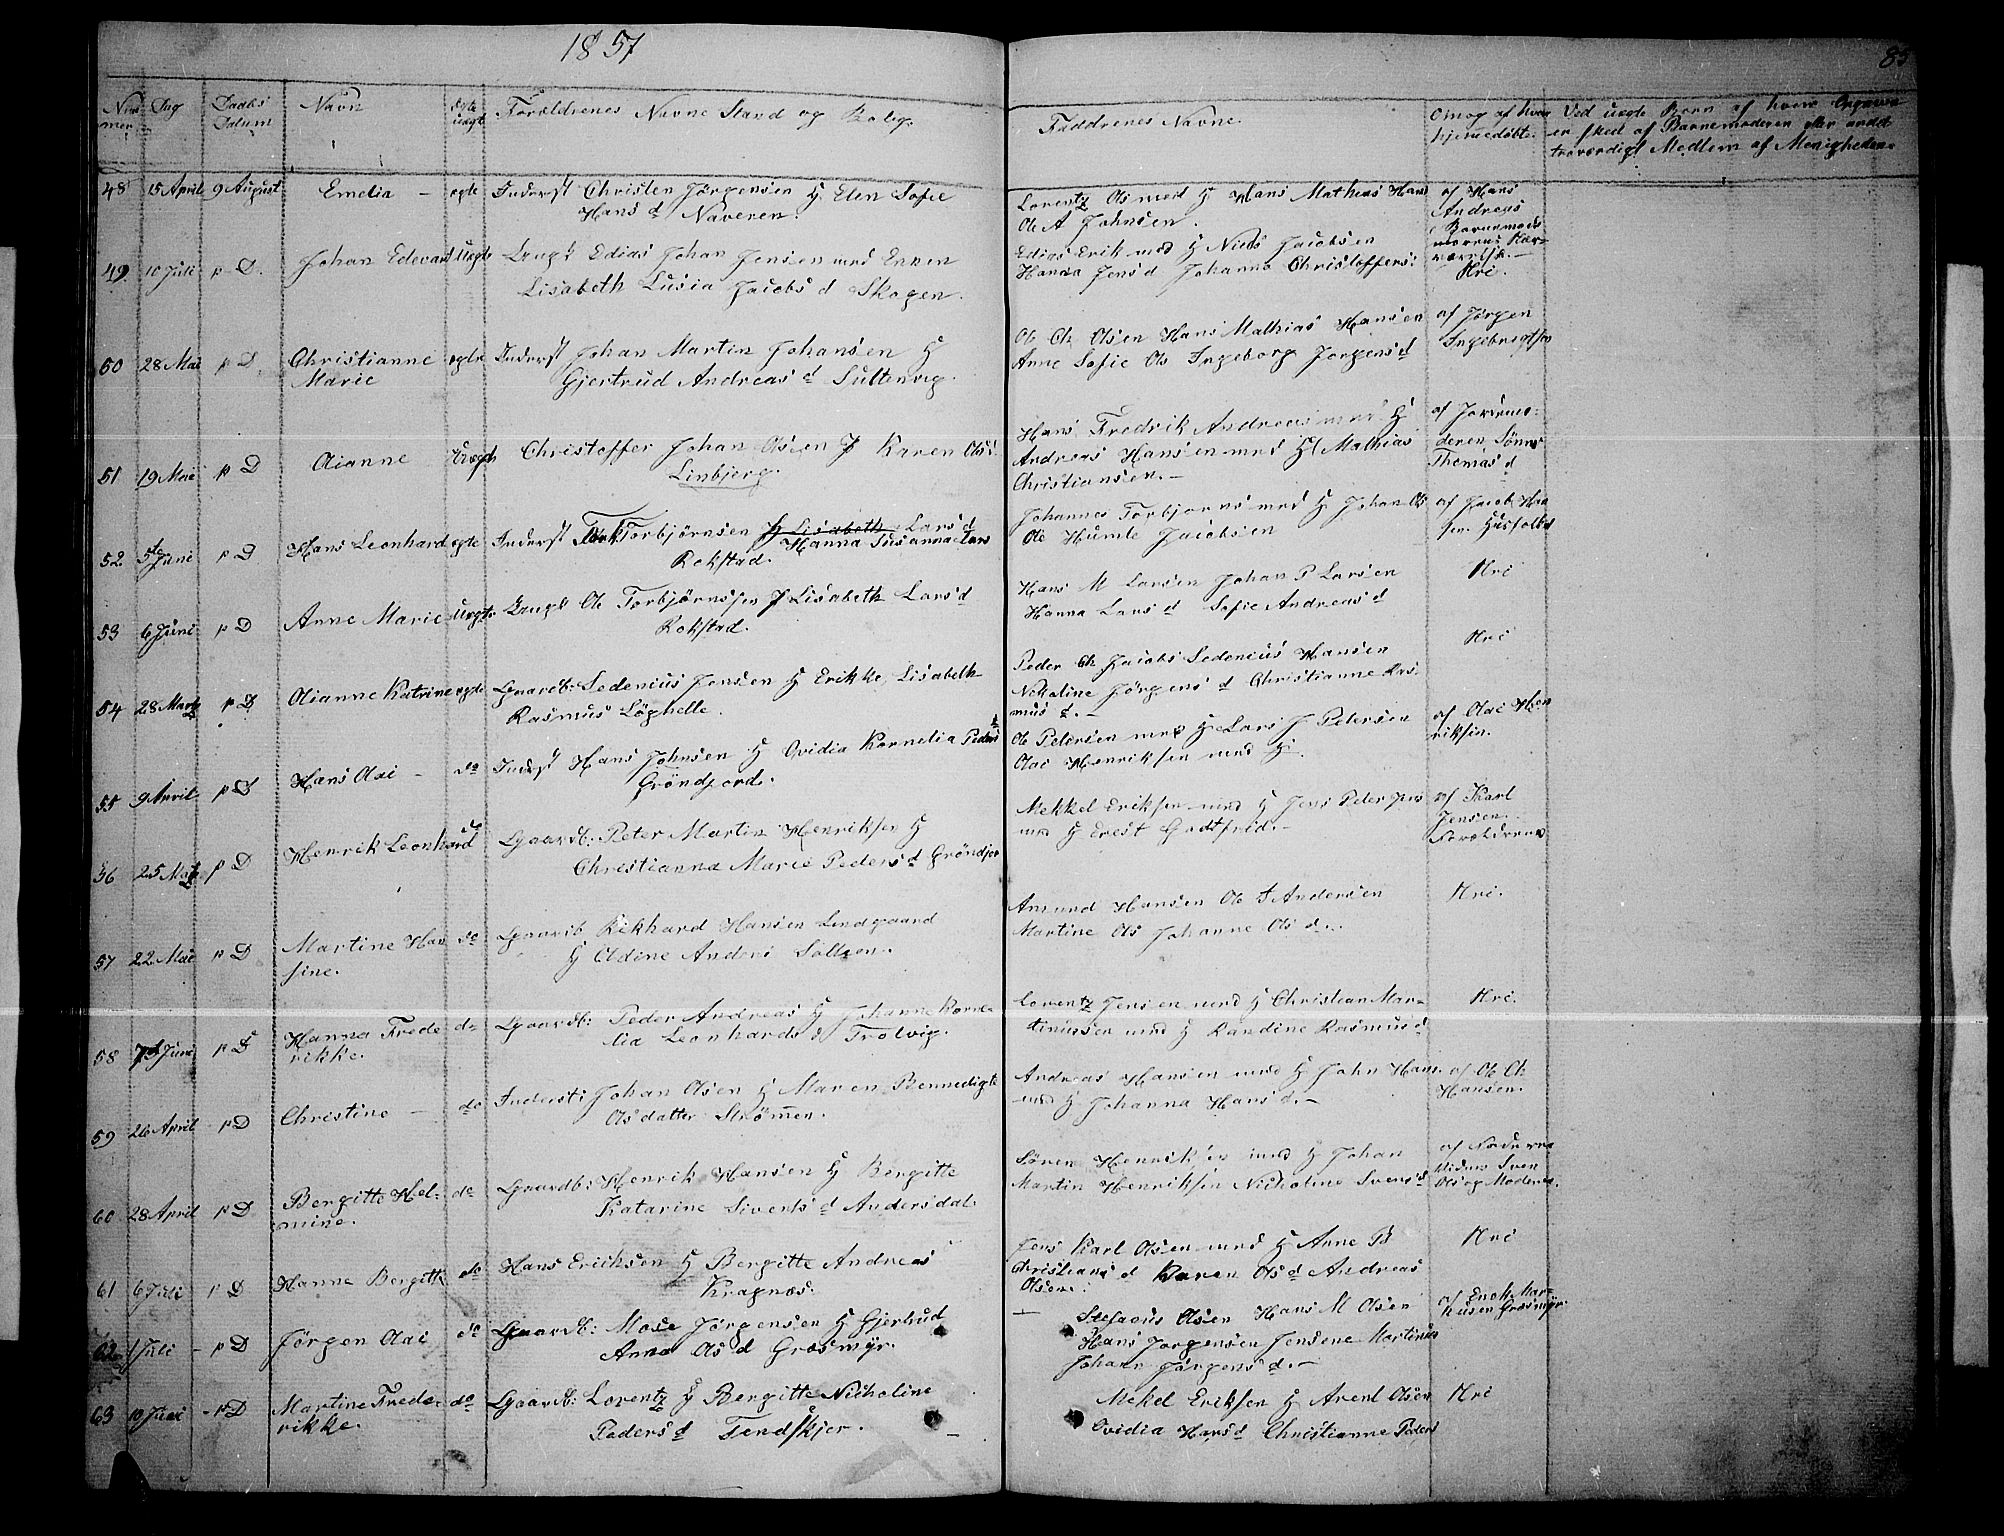 1857
85
Dag
Daabs
Datum
Navn
Forældrenes Navne Stand og Bolig.
Faddrenes Navne.
Om og af hvem
hjemmedøbte.
Ved uægte Børn af hvem Angivelse
er skeet af Barnemoderen eller andet
troværdigt Medlem af Menigheden.
48 15 April 9 August Emelia - egte Inderst Christen Jörgensen H Elen Sofie
Hans d Naveren.
Lorentz Ols med H Hans Mathias Hans
Ole A Johnsen.
af Hans
Andreas
49 10 Juli p D. Johan Edevard Uegte Ungk Edias Johan Jensen med Enken
Lisabeth Lusia Jacobs d Skogen.
Edias Erik med H Niels Jacobsen
Hanna Jens d Johanna Christoffers:
Kri.
50 28 Mai p D. Christianne egte Inderst Johan Martin Johansen H
Marie Gjertrud Andreas d Sultenvig.
Ole Ch Olsen Hans Mathias Hansen
Anne Sofie Ols Ingeborg Jorgens d
af Jörgen
Ingebrigtsen
51 19 Mai p D Aianne Uegte Christoffer Johan Olsen P Karen Ols:
Linbjerg.
Hans Fredrik Andreas med H
Andreas Hansen med H Mathias
Christiansen. -
af Jordmo-
deren Sönn
Thomas d
52 5te Juni p D Hans Leonhard egte Inderst Torbjörnsen Lisabeth Lars d
Hanna Susanna Lars
Rokstad.
Johannes Torbjorns med H Johan Ols
Ole Humle Jacobsen
af Jacob
53 6 Juni p D Anne Marie Uegte Ungk Ole Torbjørnsen P Lisabeth Lars d
Rokstad.
Hans M Larsen Johan P Larsen
Hanna Lars d Sofie Andreas d
Kri
54 28 Marts p D Aianne Katrine egte Gaardb: Sedenius Jensen H Erikke Lisabeth
Rasmus Löghelle.
Peder Ch Jacobs Sedenius Hansen
Nikoline Jörgens d Christianne Ras-
mus d. -
Kri
55 9 April p D Hans Aai - do Inderst Hans Johnsen H Ovidia Kornelia Peders
Gröndfjord.
Ole Petersen med H Lars J Petersen
Aai Henriksen med H.
af Aai Hen
riksen.
56 25 Marts p D Henrik Leonhard do Gaardb: Peter Martin Henriksen H
Christianna Marie Peders d Gröndfjor
Mekkel Eriksen med H Jens Peter Jens
med H Erest Godtfrid. -
af Karl
Jensen.
Forældrene
57 22 Mai p D Martine Han do Gaardb Rikhard Hansen Lindgaard
sine. H Oldine Anders Sölleen.
Amund Hansen Ole S Andersen
Martine Ols Johanne Ols d.
Kri.
58 7d Juni p D Hanna Frede do Gaardb: Peder Andreas H Johanne Korne
rikke. lia Leonhards d Trolvig.
Lorentz Jensen med H Christian Mar-
tinussen med H Randine Rasmus d
Kri.
59 26 April p D Christine - do Inderst: Johan Olsen H Maren Bennedigte
Olsdatter Strömmen.
Andreas Hansen med H John Hans
med H Johanna Hans d. -
af Ole Ch
Hansen.
60 28 April p D Bergitte Hel- do Gaardb: Henrik Hansen H Bergitte
mine. Katarine Siverts d Andersdal
Sören Henriksen med H Johan
Martin Henriksen Nicholine Svens d
Ols og Moderen.
61 6 Juli p D Hanne Bergitte do Hans Eriksen H Bergitte Andreas
Kragnæs.
Jens Karl Olsen med H Anne B
Christians d Karen Ols d Andreas
Olsen.
Kri
62 1 Juli - p D Jörgen Aai do Gaardb: Mose Jörgensen H Gjertrud
Anna Ols d Græsmyr.
Stefanus Olsen Hans M Olsen
Hans Jorgensen Jensine Martinus
Johan Jörgens d. -
af Enok Mar-
kusen Græsmyr.
63 10 Juni - p D Martine Frede- do Gaardb: Lorentz H Bergitte Nicholine
rikke. Peders d Tendskjer. -
Mekel Eriksen H Arent Olsen
Ovidia Hans d Christianne Peders
Kri